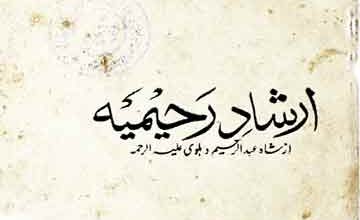 ارشادِ رَحیمیه
از شاه عبدالرحیم دہلوی علیہ الرحمہ